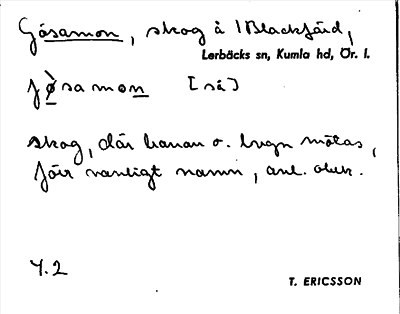 Gåsamon, skog å 1 Blackfärd,
Lerbäcks sn, Kumla hd, Ör. l.
samon [så]
skog, där banan o. lugn mötas,
vanligt namn, anl. obek.
4.2
T. ERICSSON